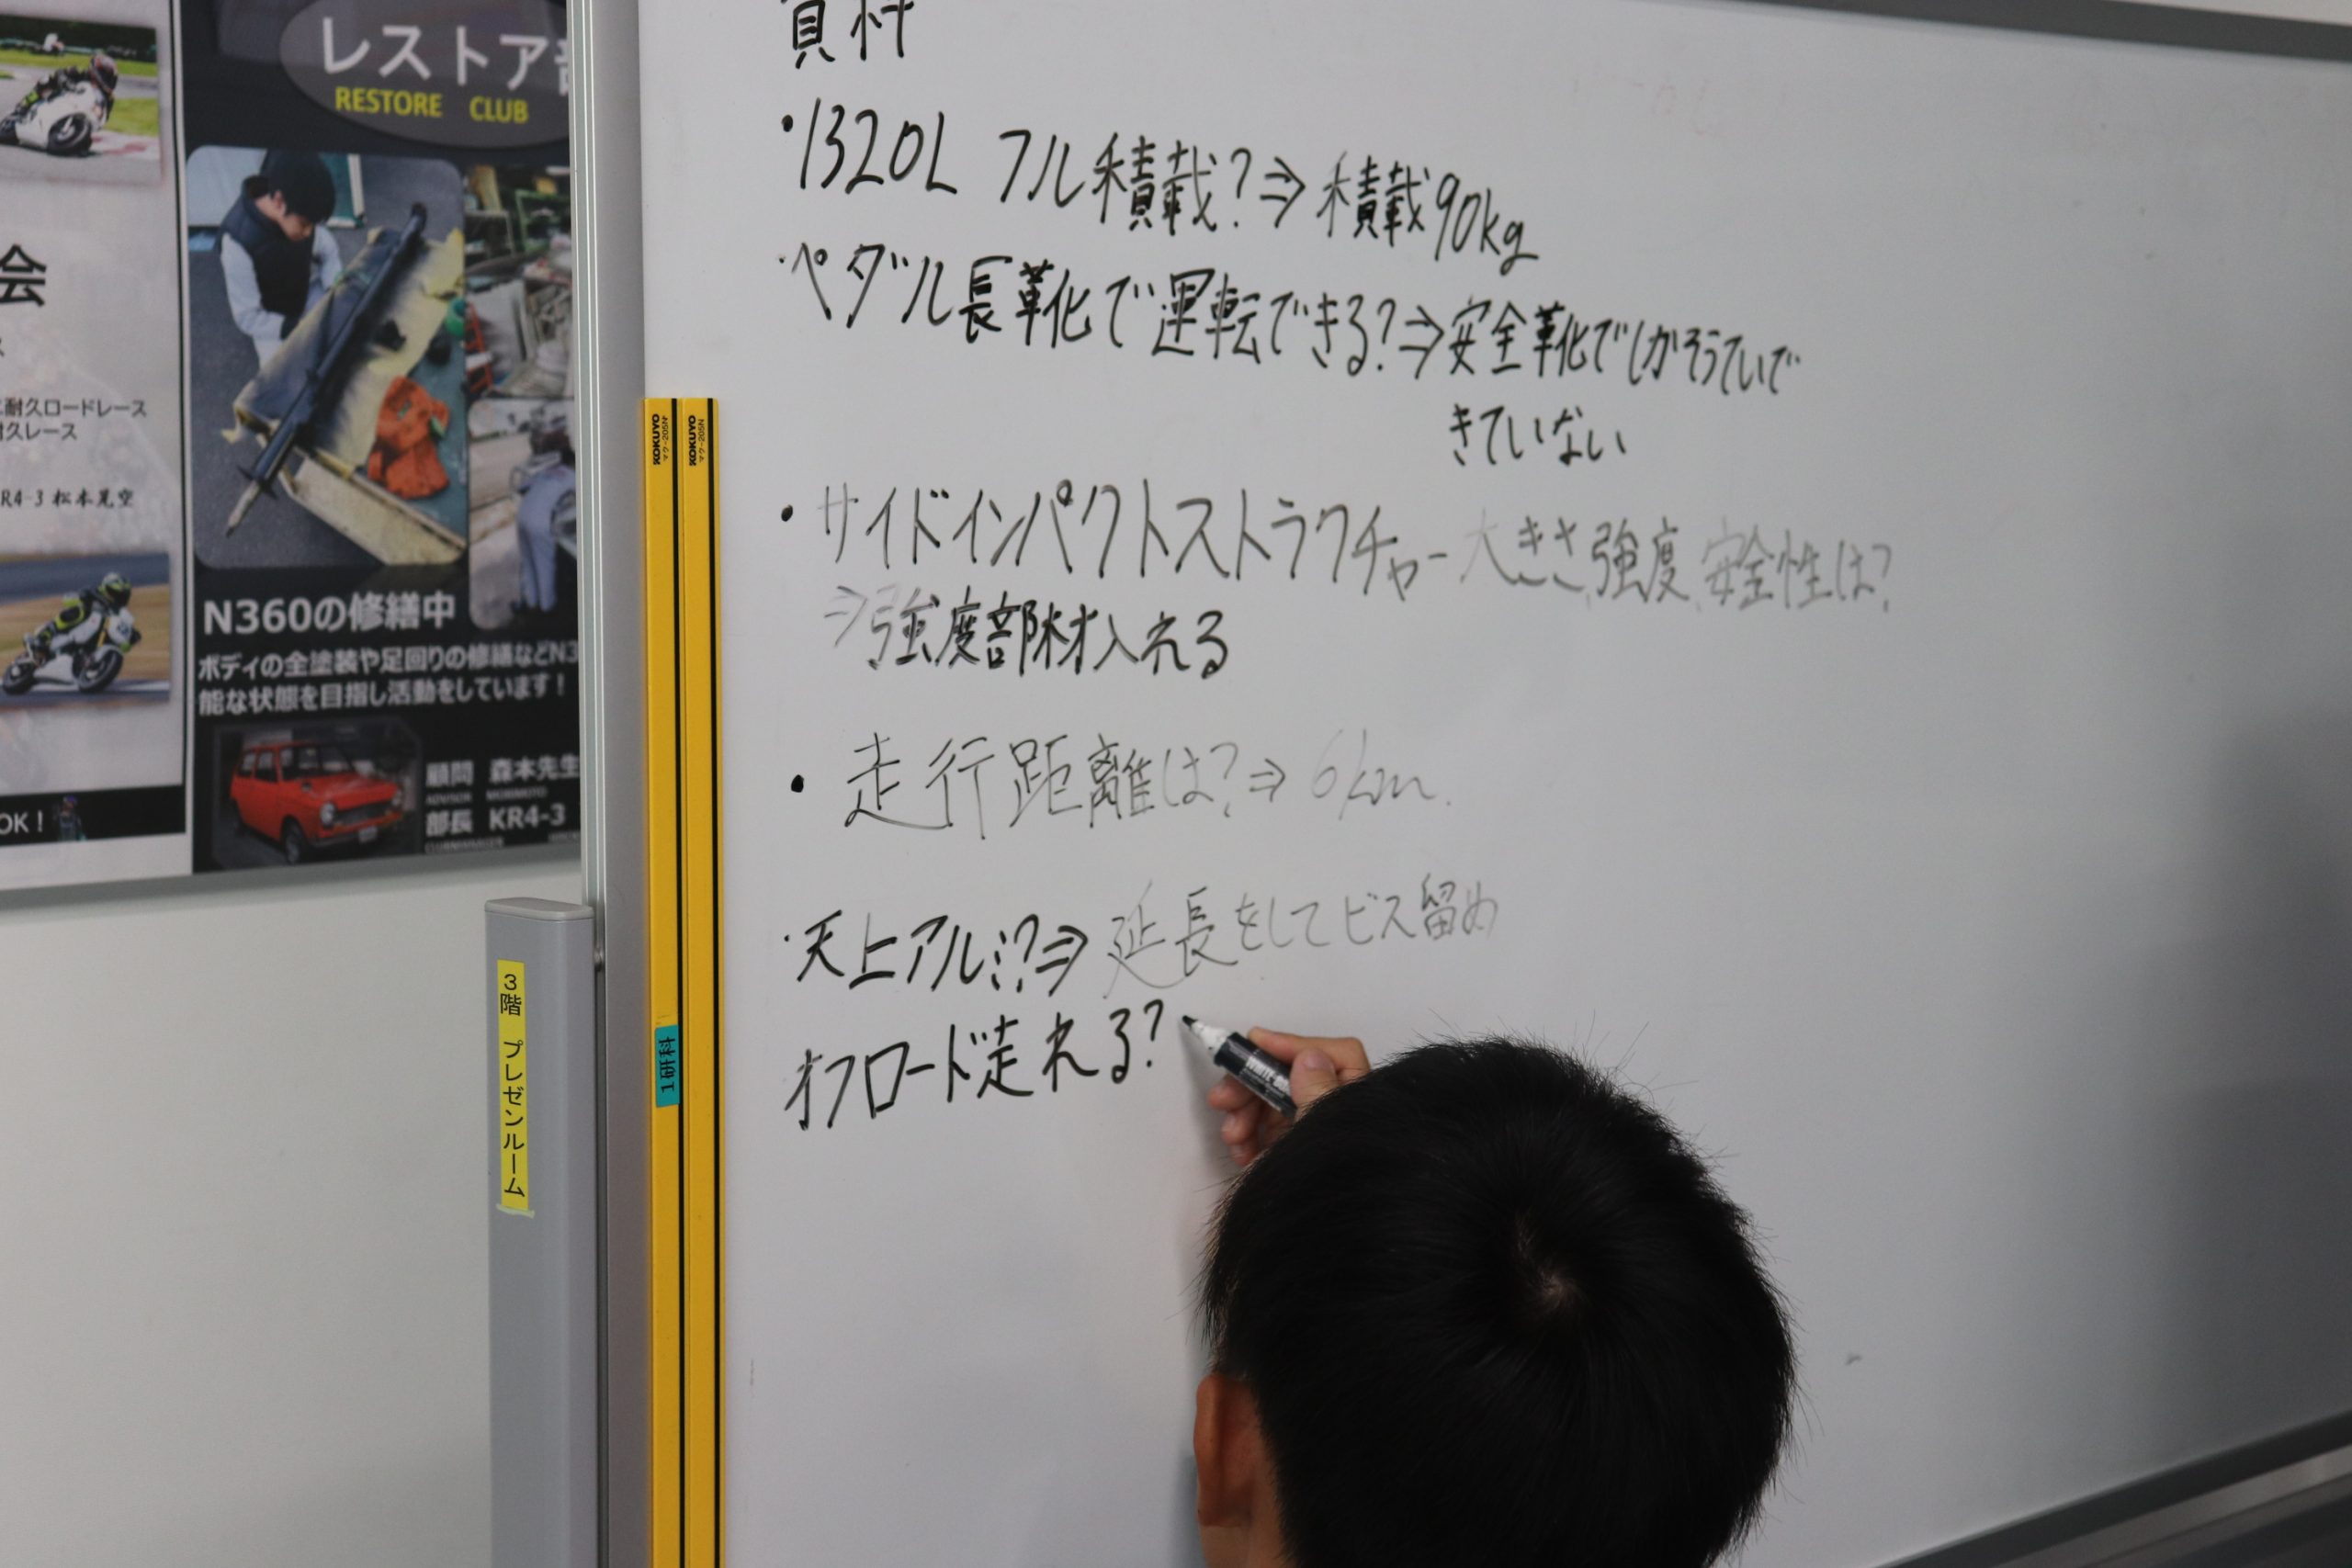 会
耐久ロードレース
耐久レース
R4-3 松本晃空
OK！
レストア部
RESTORE CLUB
N360の修繕中
ボディの全塗装や足回りの修繕などN3
能な状態を目指し活動をしています！
顧問 森本先生
ADVISOR MORIMOTO
部長 KR4-3
3階 プレゼンルーム
KOKUYO
マク-205N
KOKUYO
マク-205N
1研科
資料
・1320L フル積載?⇒積載90kg
・ペダル長靴で運転できる?⇒安全靴でしかそうていで
きていない
・サイドインパクトストラクチャー大きさ、強度、安全性は?
⇒強度部材入れる
・走行距離は?⇒6km.
・天上アルミ?⇒延長をしてビス留め
オフロード走れる?